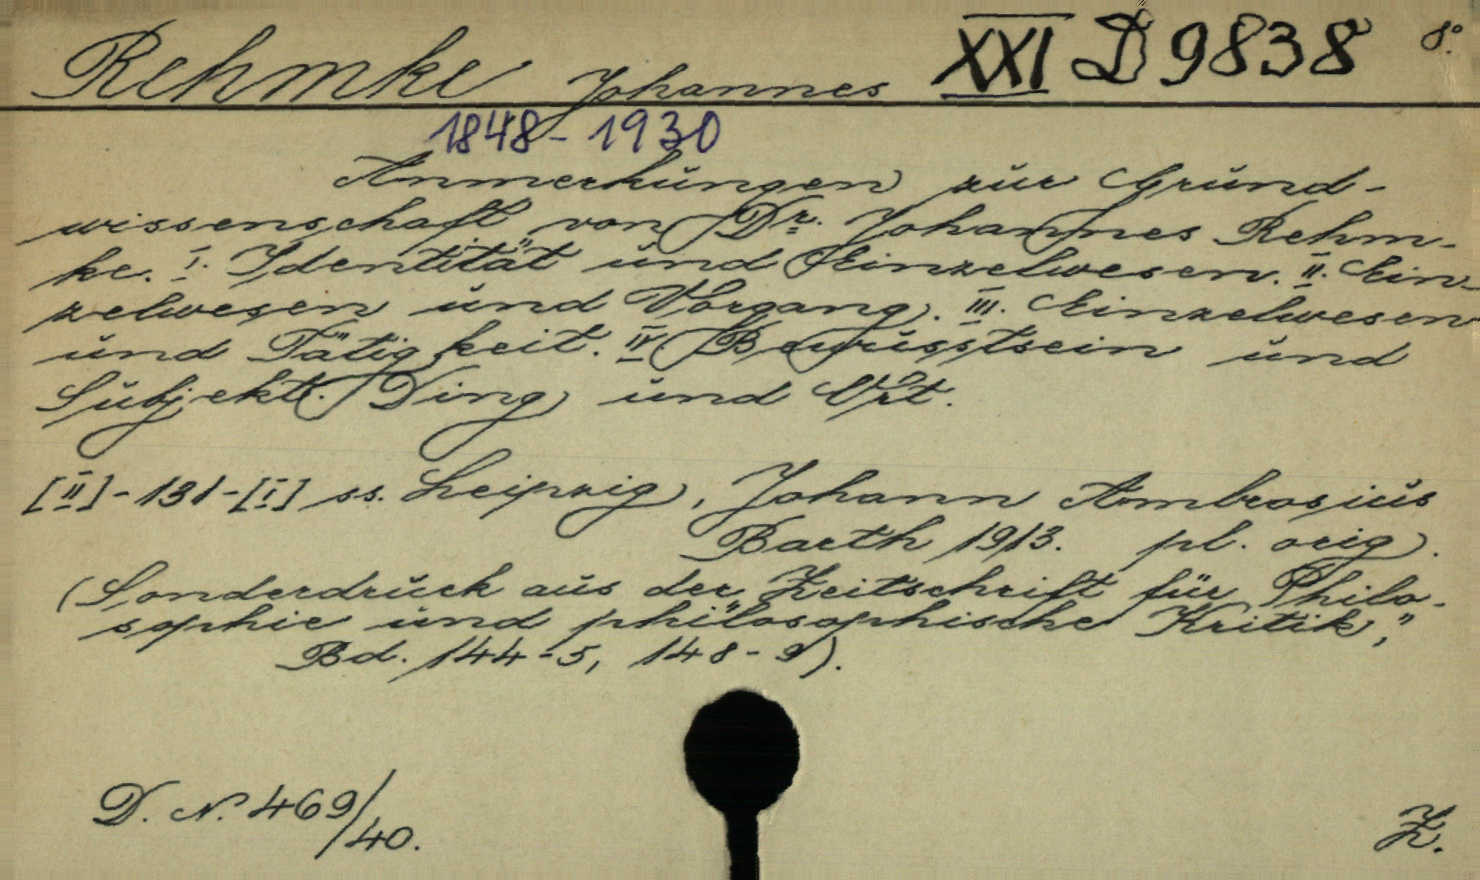 Rehmke Johannes XXI D 9838 8°.
1848-1930
Anmerkungen zur Grund-
wissenschaft von Dr. Johannes Rehm-
ke. I. Identität und Einzelwesen. II. Ein-
zelwesen und Vorgang. III. Einzelwesen
und Tätigkeit. IV Bewusstsein und
Subjekt. Ding und Ort.
[II]-131-[I] ss. Leipzig, Johann Ambrosius
Barth 1913. pl. orig.
(Sonderdruck aus der Zeitschrift für Philo-
sophie und philosophische Kritik,"
Bd. 144-5, 148-9).
D. N. 469/40.
Z.